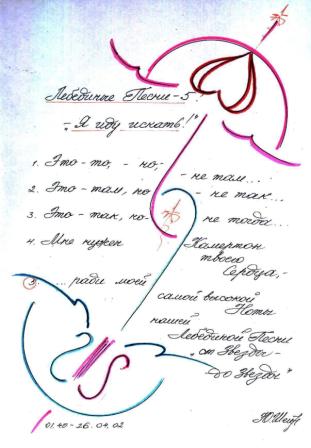 Лебединые Песни-5
"Я иду искать!"
1. Это-то, - но, - не там...
2. Это-там, но - не так...
3. Это-так, но- не тогда...
4. Мне нужен Камертон
твоего
Сердца,-
5. ...ради моей самой высокой
Ноты
нашей Лебединой Песни
"от Звезды -
до Звезды"
01.40-26.04.02